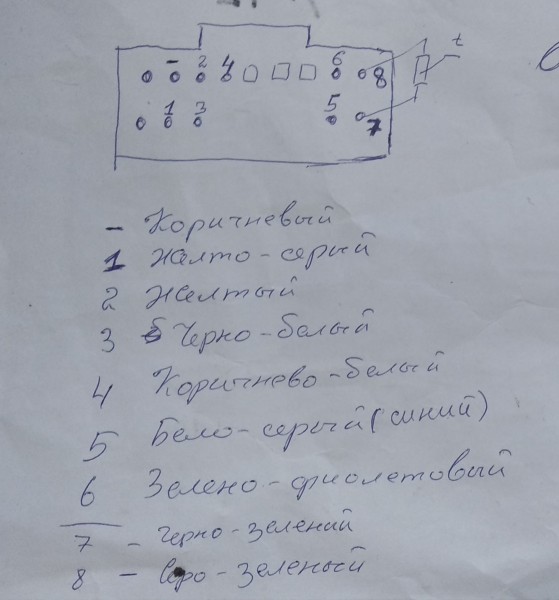 - 2 4 6 t
8
1 3 5
7
- Коричневый
1 Желто-серый
2 Желтый
3 Черно-белый
4 Коричнево-белый
5 Бело-серый (синий)
6 Зелено-фиолетовый
7 - Черно-зелений
8 - Серо-зеленый